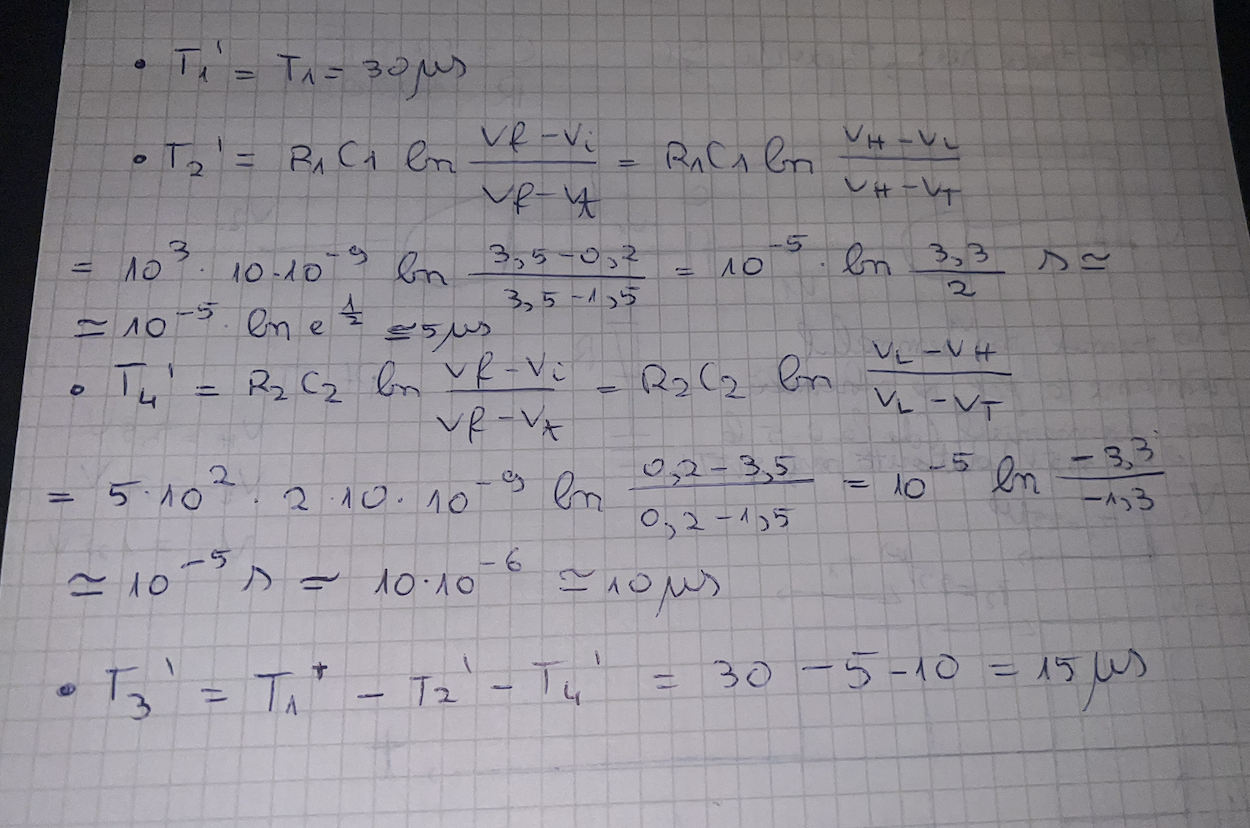 • T₁' = T₁ = 30 μs
• T₂' = R₁C₁ ln (Vf - Vi)/(Vf - Vt) = R₁C₁ ln (VH - VL)/(VH - VT)
= 10³ · 10·10⁻⁹ ln (3,5 - 0,2)/(3,5 - 1,5) = 10⁻⁵ · ln (3,3)/2 s ≃
≃ 10⁻⁵ · ln e^(1/2) ≃ 5 μs
• T₄' = R₂C₂ ln (Vf - Vi)/(Vf - Vt) = R₂C₂ ln (VL - VH)/(VL - VT)
= 5·10² · 2·10·10⁻⁹ ln (0,2 - 3,5)/(0,2 - 1,5) = 10⁻⁵ ln (-3,3)/(-1,3)
≃ 10⁻⁵ s = 10·10⁻⁶ ≃ 10 μs
• T₃' = T₁⁺ - T₂' - T₄' = 30 - 5 - 10 = 15 μs